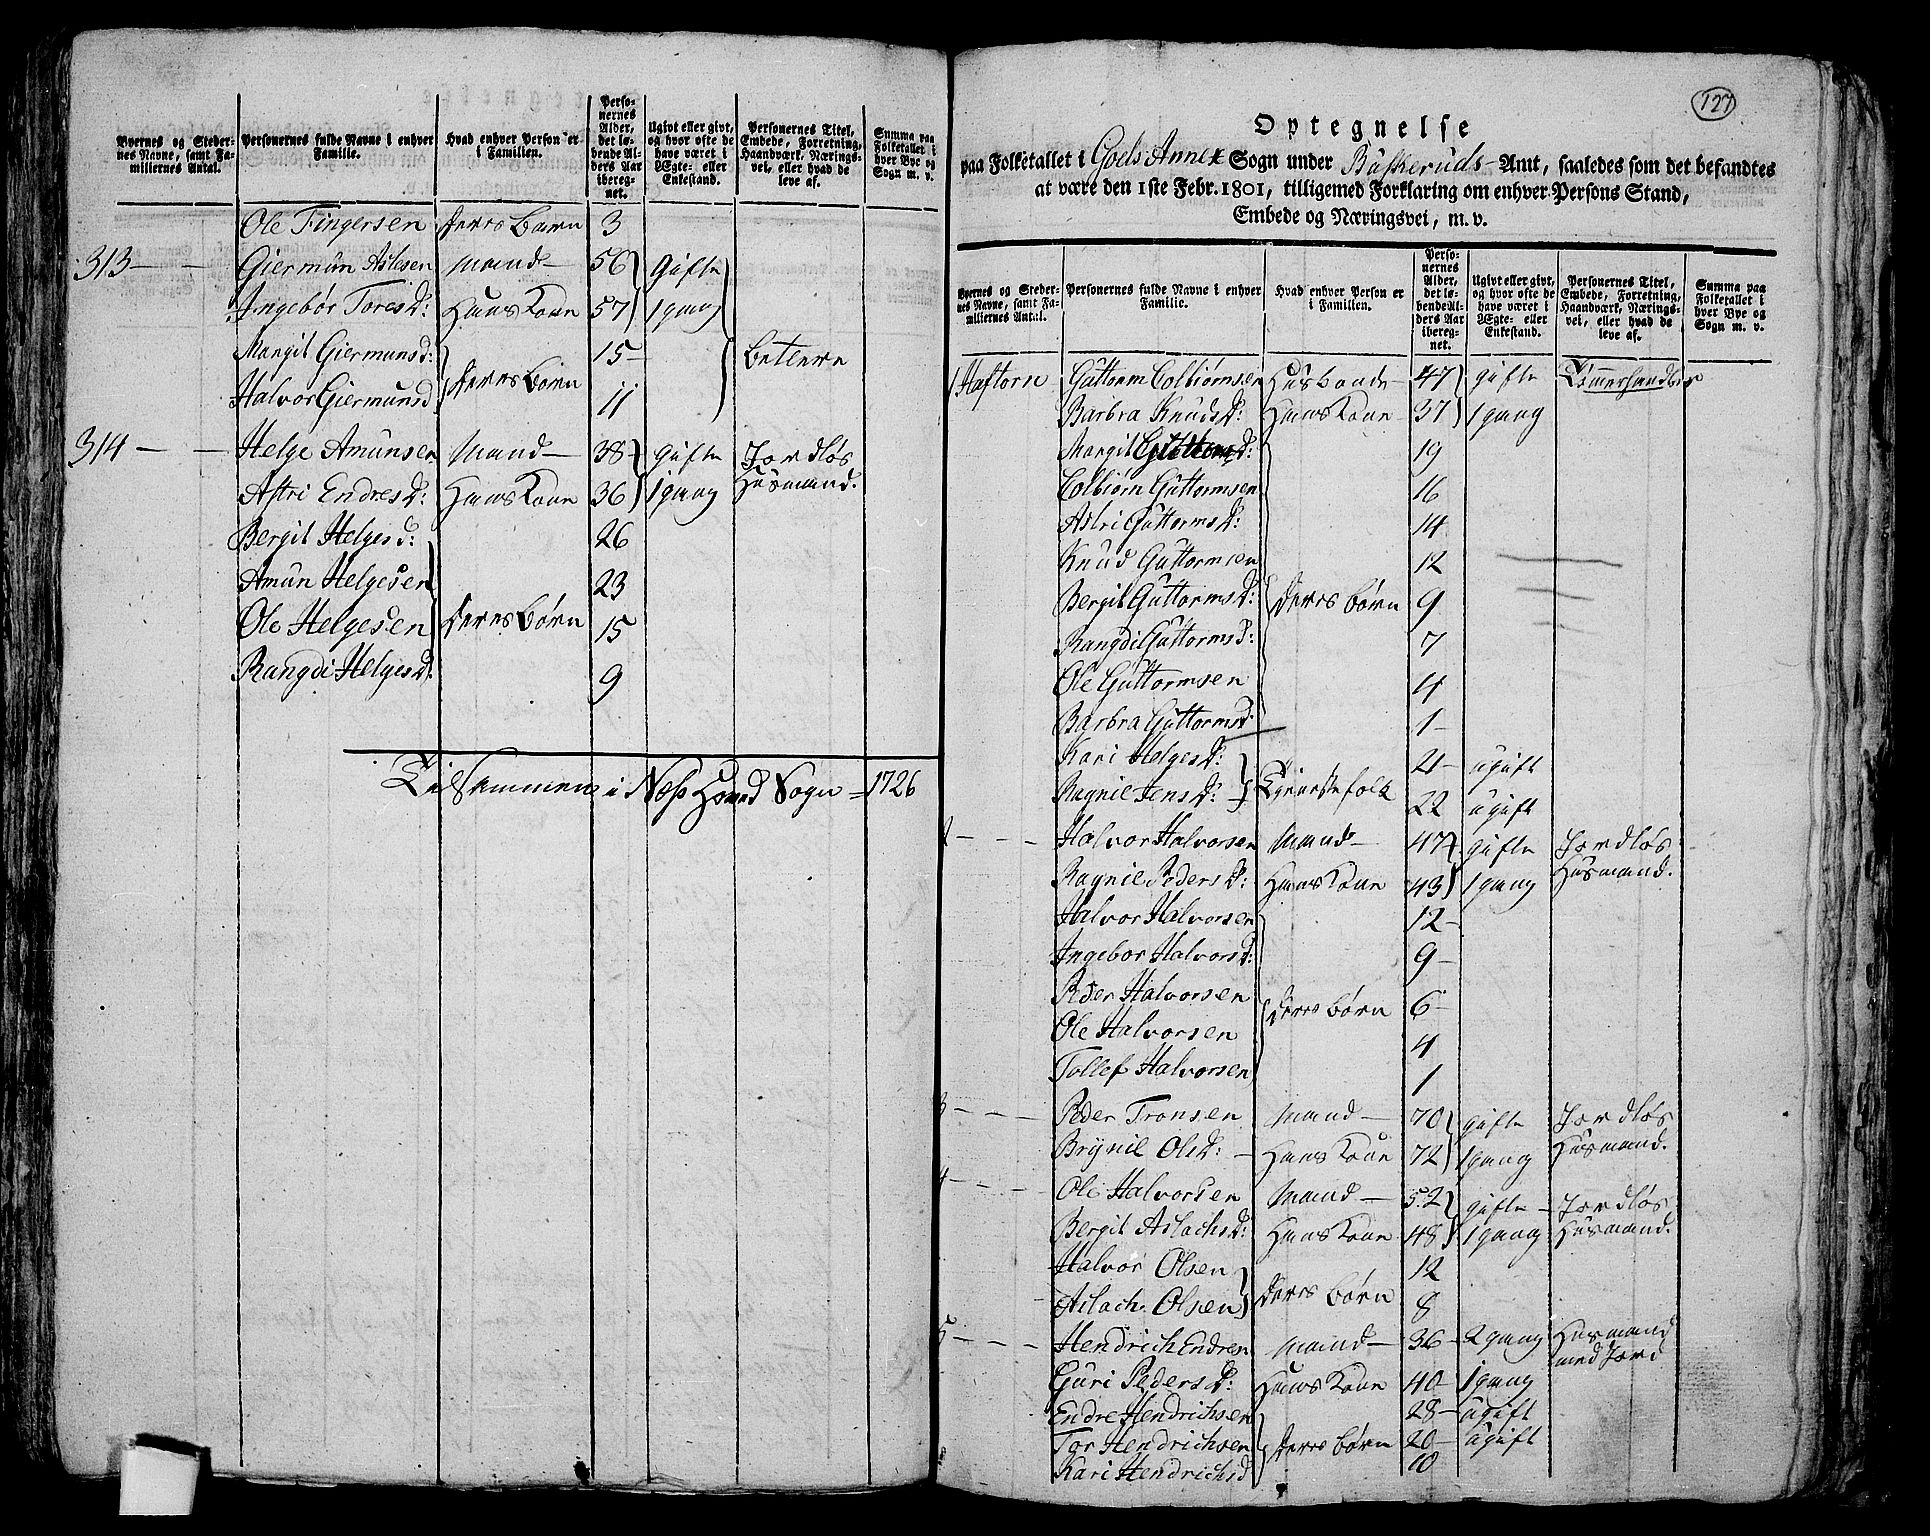 Byernes og Stedernes Navne, samt Familiernes Antal.
Personernes fulde Navne i enhver Familie.
Hvad enhver Person er i Familien.
Personernes Alder, det løbende Alders Aar iberegnet.
Ugivt eller givt, og hvor ofte de have været i Ægte- eller Enkestand.
Personernes Titel, Embede, Forretning, Haandværk, Næringsvei, eller hvad de leve af.
Summa paa Folketallet i hver Bye og Sogn m. v.
Ole Fingersen Deres Barn 3
313 Giermün Aslesen Mand 56 gifte
Ingebør Toresd: Hans Kone 57 1 gang
Margit Giermunsd: Deres Børn 15 betlere
Halvor Giermunsd 11
314 Helge Amünsen Mand 38 gifte Jordløs
Astri Endresd: Hans Kone 36 1 gang Husmand.
Bergit Helgesd: 26
Amün Helgesen 23
Ole Helgesen Deres Børn 15
Rangdi Helgesd: 9
Tilsammen i Næss Hoved Sogn = 1726
127
Optegnelse
paa Folketallet i Gols Annex Sogn under Buskeruds Amt, saaledes som det befandtes
at være den 1ste Febr. 1801, tilligemed Forklaring om enhver Persons Stand,
Embede og Næringsvei, m. v.
Byernes og Stedernes Navne, samt Familiernes Antal.
Personernes fulde Navne i enhver Familie.
Hvad enhver Person er i Familien.
Personernes Alder, det løbende Alders Aar iberegnet.
Ugivt eller givt, og hvor ofte de have været i Ægte- eller Enkestand.
Personernes Titel, Embede, Forretning, Haandværk, Næringsvei, eller hvad de leve af.
Summa paa Folketallet i hver Bye og Sogn m. v.
1 Haftorn Guttorm Colbiørnsen Husbonde 47 gifte Tømmerhandler
Barbra Knudsd: Hans Kone 37 1 gang
Margit Guttormsd: 19
Colbiørn Guttormsen 16
Astri Guttormsd: 14
Knud Guttormsen 12
Bergit Guttormsd: Deres børn 9
Rangdi Guttormsd: 7
Ole Guttormsen 4
Barbra Guttormsd: 1
Kari Helgesd: 21 ugift
Ragnil Jensd: Tjenestefolk 22 ugift
2 Halvor Halvorsen Mand 47 gifte Jordløs
Ragnil Pedersd: Hans Kone 43 1 gang Husmand.
Halvor Halvorsen 12
Ingebor Halvorsd: 9
Peder Halvorsen Deres børn 6
Ole Halvorsen 4
Tollef Halvorsen 1
3 Peder Tronsen Mand 70 gifte Jordløs
Brynil Olsd: Hans Kone 72 1 gang Husmand.
4 Ole Halvorsen Mand 52 gifte Jordløs
Bergit Aslachsd: Hans Kone 48 1 gang Husmand.
Halvor Olsen Deres børn 12
Aslach Olsen 8
5 Hendrich Endresen Mand 36 2 gang Husmand med Jord
Guri Pedersd: Hans Kone 40 1 gang
Endre Hendrichsen 28 ugift
Tor Hendrichsen Deres børn 20 ugift
Kari Hendrichsd 10